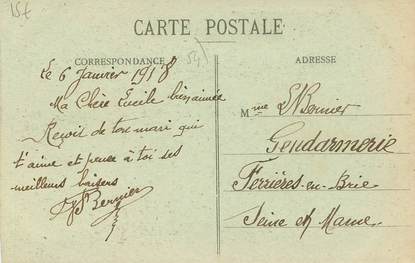 154
CARTE POSTALE
CORRESPONDANCE
ADRESSE
le 6 Janvier 1918
Ma Chère Lucile bien aimée
Reçois de ton mari qui
t'aime et pense à toi ses
meilleurs baisers
Bernier
Mme L Bernier
Gendarmerie
Ferrières-en-Brie
Seine et Marne